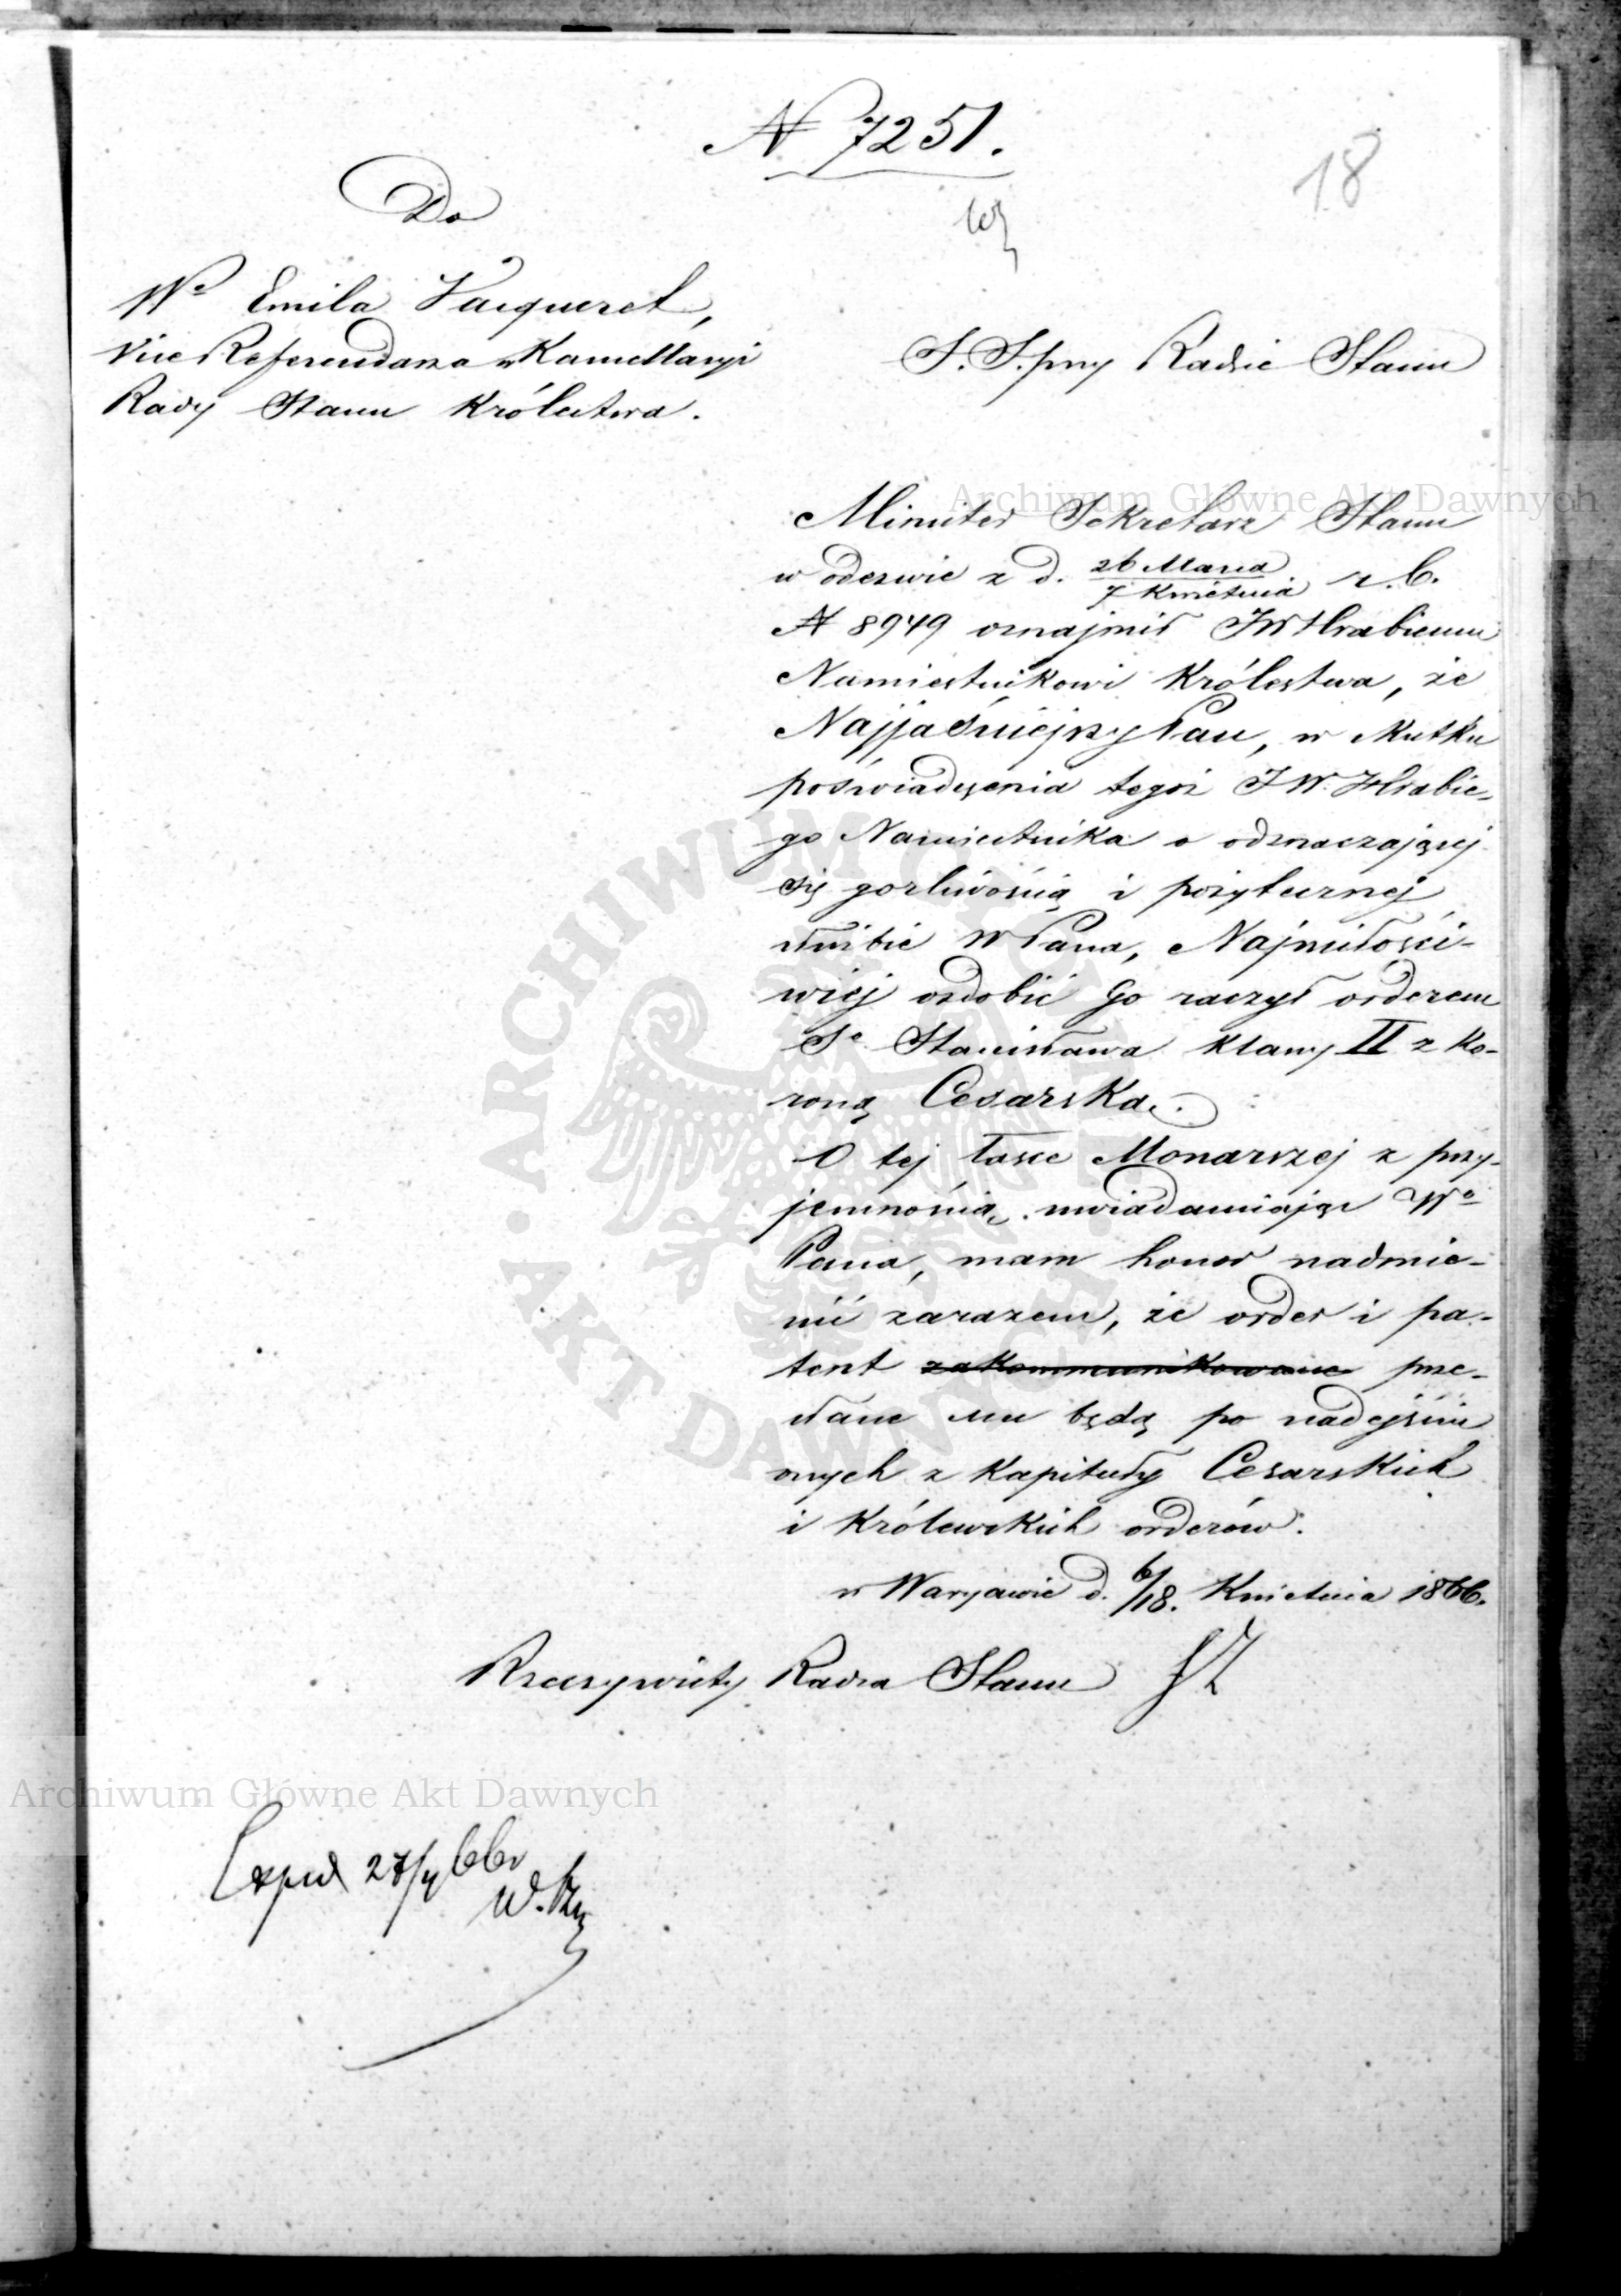 N 7251.
18
Do
Wo Emila Vacqueret,
Vice Referendarza w Kancellaryi
Rady Stanu Królestwa.
S. S. przy Radzie Stanu
Minister Sekretarz Stanu
w odezwie z d. 26 Marca / 7 Kwietnia r. b.
N 8949 oznajmił JW Hrabiemu
Namiestnikowi Królestwa, że
Najjaśniejszy Pan, w skutku
poświadczenia tegoż JW. Hrabie-
go Namiestnika o odznaczającej
się gorliwością i pożytecznej
służbie W Pana, Najmiłości-
wiej ozdobić Go raczył orderem
So Stanisława klassy II z ko-
roną Cesarską.
O tej łasce Monarszej z przy-
jemnością uwiadamiając Wo
Pana, mam honor nadmie-
nić zarazem, że order i pa-
tent zakommunikowane prze-
słane mu będą po nadejściu
onych z Kapituły Cesarskich
i Królewskich orderów.
w Warszawie d. 6/18. Kwietnia 1866.
Rzeczywisty Radca Stanu
Exped 27/4 66 r
Archiwum Główne Akt Dawnych
Archiwum Główne Akt Dawnych
ARCHIWUM GŁÓWNE AKT DAWNYCH